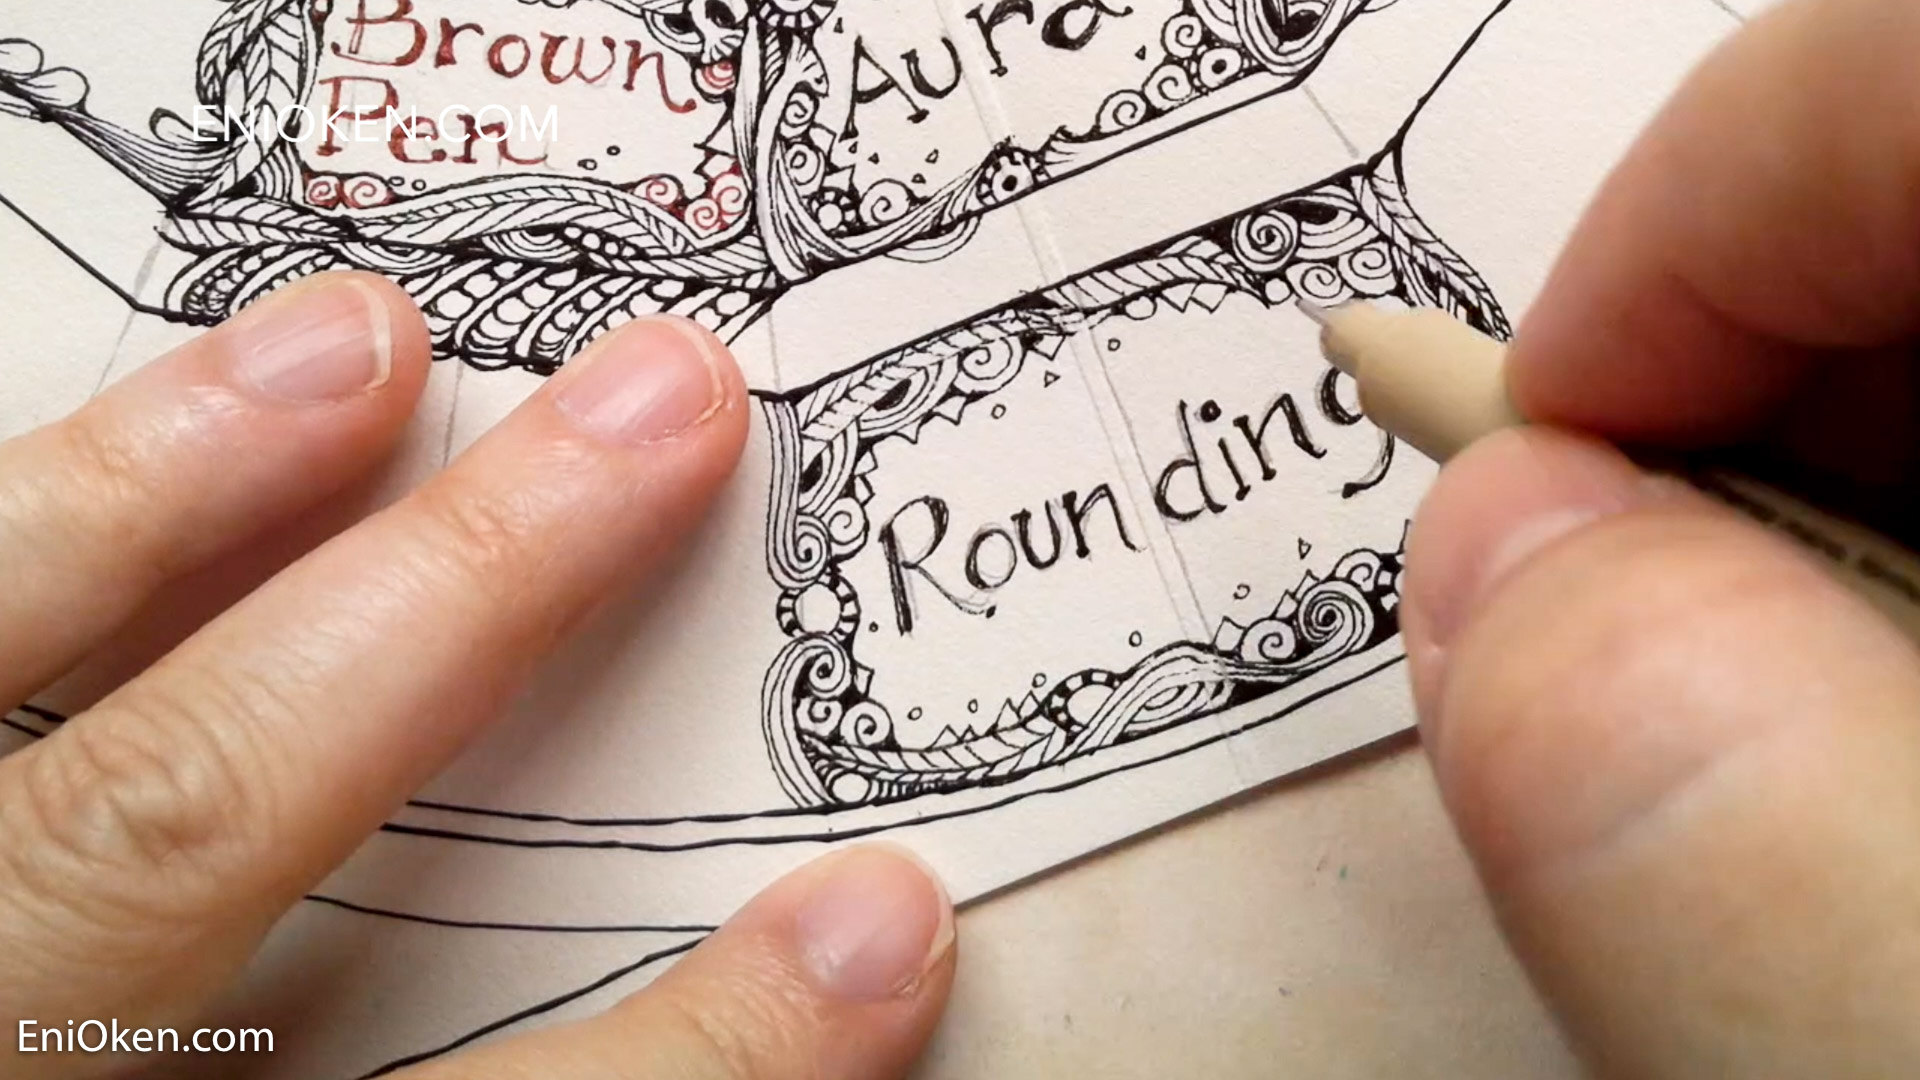 Brown
Pen
ENIOKEN.COM
Aura
Rounding
EniOken.com